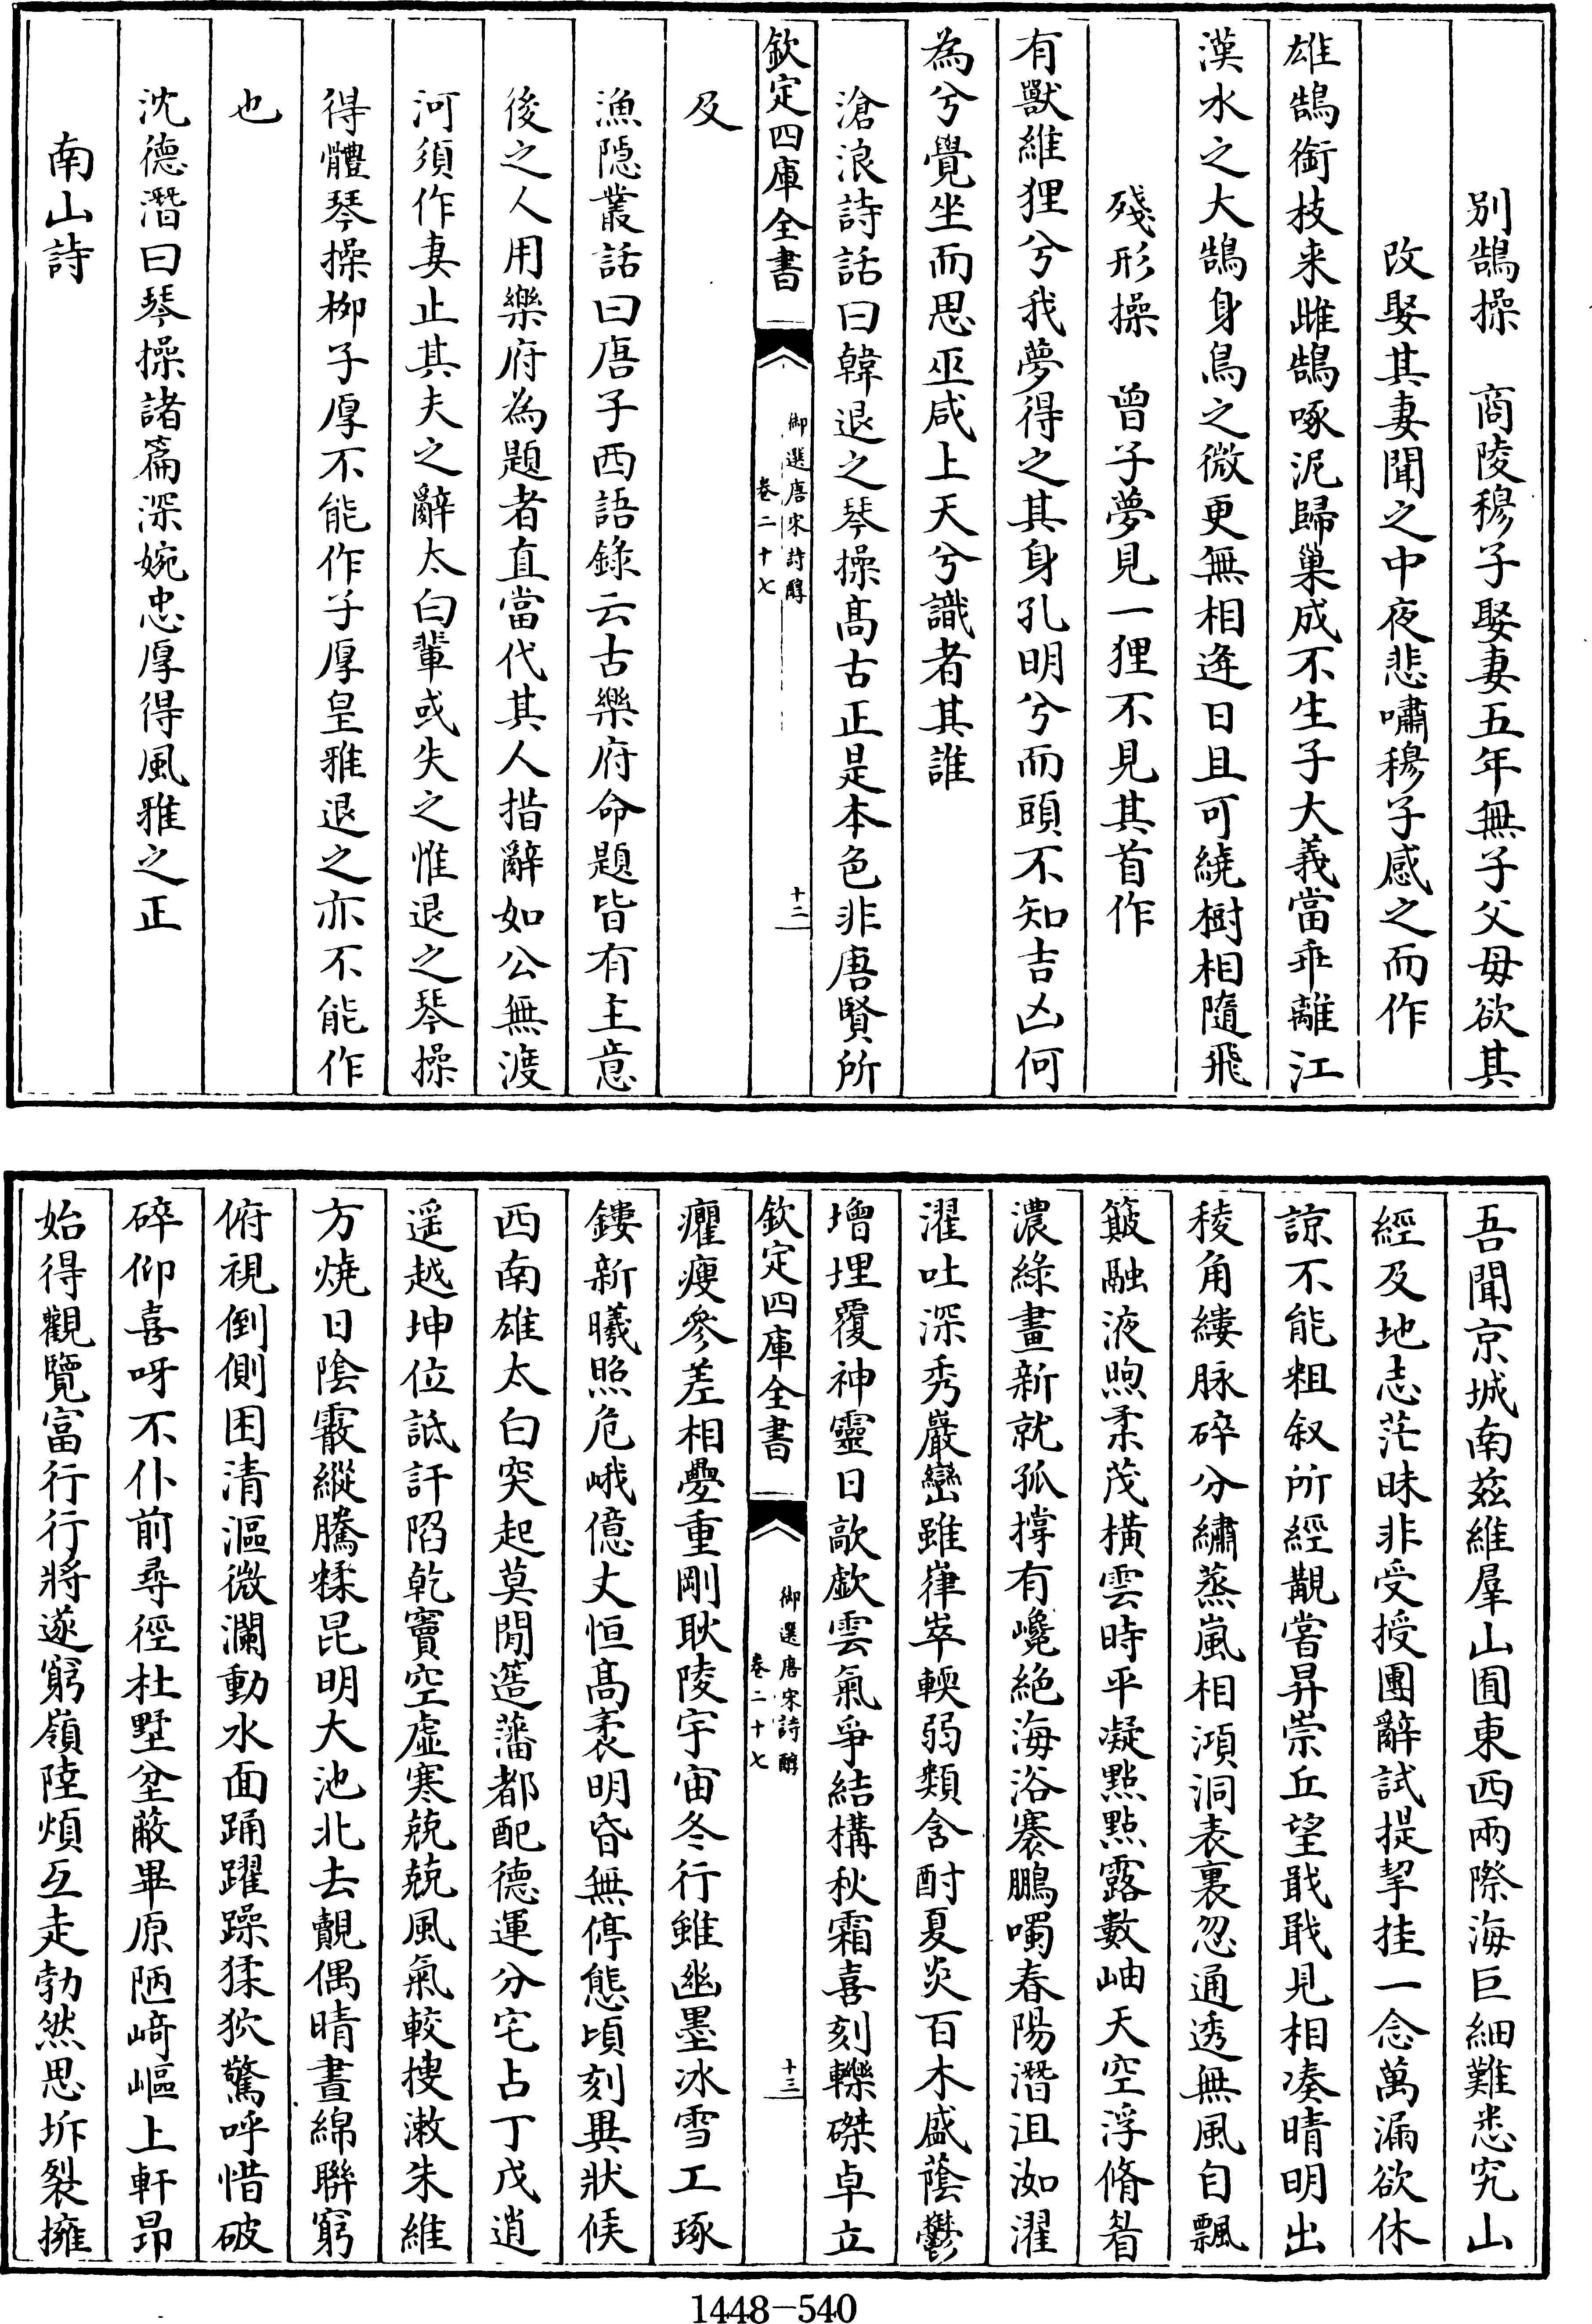 別鵠操　商陵穆子娶妻五年無子父母欲其
改娶其妻聞之中夜悲嘯穆子感之而作
雄鵠銜枝来雌鵠啄泥歸巢成不生子大義當乖離江
漢水之大鵠身鳥之微更無相逢日且可繞樹相隨飛
殘形操　曾子夢見一狸不見其首作
有獸維狸兮我夢得之其身孔明兮而頭不知吉凶何
為兮覺坐而思巫咸上天兮識者其誰
滄浪詩話曰韓退之琴操髙古正是本色非唐賢所
欽定四庫全書
御選唐宋詩醇
卷二十七
十二
及
漁隠叢話曰唐子西語錄云古樂府命題皆有主意
後之人用樂府為題者直當代其人措辭如公無渡
河須作妻止其夫之辭太白輩或失之惟退之琴操
得體琴操栁子厚不能作子厚皇雅退之亦不能作
也
沈德潛曰琴操諸篇深婉忠厚得風雅之正
南山詩
吾聞京城南茲維羣山囿東西兩際海巨細難悉究山
經及地志茫昧非受授團辭試提挈挂一念萬漏欲休
諒不能粗叙所經覯嘗昇崇丘望戢戢見相湊晴明出
稜角縷脉碎分繡蒸嵐相澒洞表裏忽通透無風自飄
簸融液煦柔茂橫雲時平凝點點露數岫天空浮脩眉
濃綠畫新就孤撐有巉絕海浴褰鵬噣春陽潛沮洳濯
濯吐深秀巖巒雖嵂崒輭弱類含酎夏炎百木盛蔭鬱
增埋覆神靈日歊歔雲氣爭結構秋霜喜刻轢磔卓立
欽定四庫全書
御選唐宋詩醇
卷二十七
十三
癯瘦參差相疊重剛耿陵宇宙冬行雖幽墨冰雪工琢
鏤新曦照危峨億丈恒髙袤明昏無停態頃刻異狀候
西南雄太白突起莫間簉藩都配德運分宅占丁戊逍
遥越坤位詆訐陷乾竇空虛寒兢兢風氣較搜漱朱維
方燒日陰霰縱騰糅昆明大池北去覿偶晴晝綿聯窮
俯視倒側困清漚微瀾動水面踊躍躁猱狖驚呼惜破
碎仰喜呀不仆前尋徑杜墅坌蔽畢原陋崎嶇上軒昂
始得觀覽富行行將遂窮嶺陸煩互走勃然思坼裂擁
1448-540